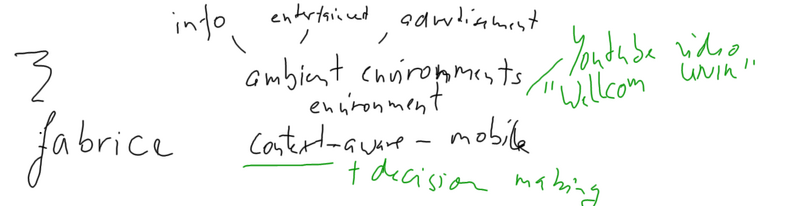 info entertained advertisement
3
ambient environments
environment
Youtube video
"Wellcom
fabrice context-aware - mobile
+ decision making